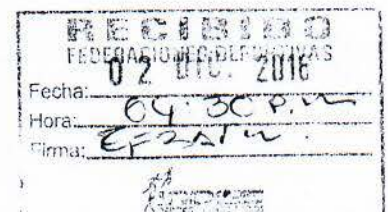 RECIBIDO
FEDERACIONES DEPORTIVAS
02 DIC. 2016
Fecha:
Hora: 04:30 P.m
Firma: